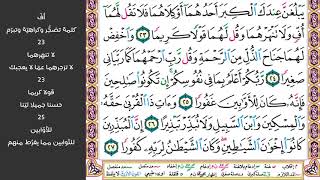 أف
كلمة تضجّر وكراهية وتبرّم
23
لا تنهرهما
لا تزجرهما عمّا لا يعجبك
23
قولا كريما
حسنا جميلا ليّنا
25
للأوّابين
للتوّابين ممّا يفرط منهم
يَبْلُغَنَّ عِندَكَ ٱلْكِبَرَ أَحَدُهُمَآ أَوْ كِلَاهُمَا فَلَا تَقُل لَّهُمَآ
أُفٍّ وَلَا تَنْهَرْهُمَا وَقُل لَّهُمَا قَوْلًا كَرِيمًا ٢٣ وَٱخْفِضْ
لَهُمَا جَنَاحَ ٱلذُّلِّ مِنَ ٱلرَّحْمَةِ وَقُل رَّبِّ ٱرْحَمْهُمَا كَمَا رَبَّيَانِى
صَغِيرًا ٢٤ رَّبُّكُمْ أَعْلَمُ بِمَا فِى نُفُوسِكُمْ إِن تَكُونُوا۟ صَٰلِحِينَ
فَإِنَّهُۥ كَانَ لِلْأَوَّٰبِينَ غَفُورًا ٢٥ وَءَاتِ ذَا ٱلْقُرْبَىٰ حَقَّهُۥ
وَٱلْمِسْكِينَ وَٱبْنَ ٱلسَّبِيلِ وَلَا تُبَذِّرْ تَبْذِيرًا ٢٦ إِنَّ ٱلْمُبَذِّرِينَ
كَانُوٓا۟ إِخْوَٰنَ ٱلشَّيَٰطِينِ وَكَانَ ٱلشَّيْطَٰنُ لِرَبِّهِۦ كَفُورًا